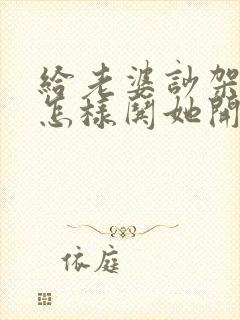 給老婆訬架
怎樣鬨她開
依庭